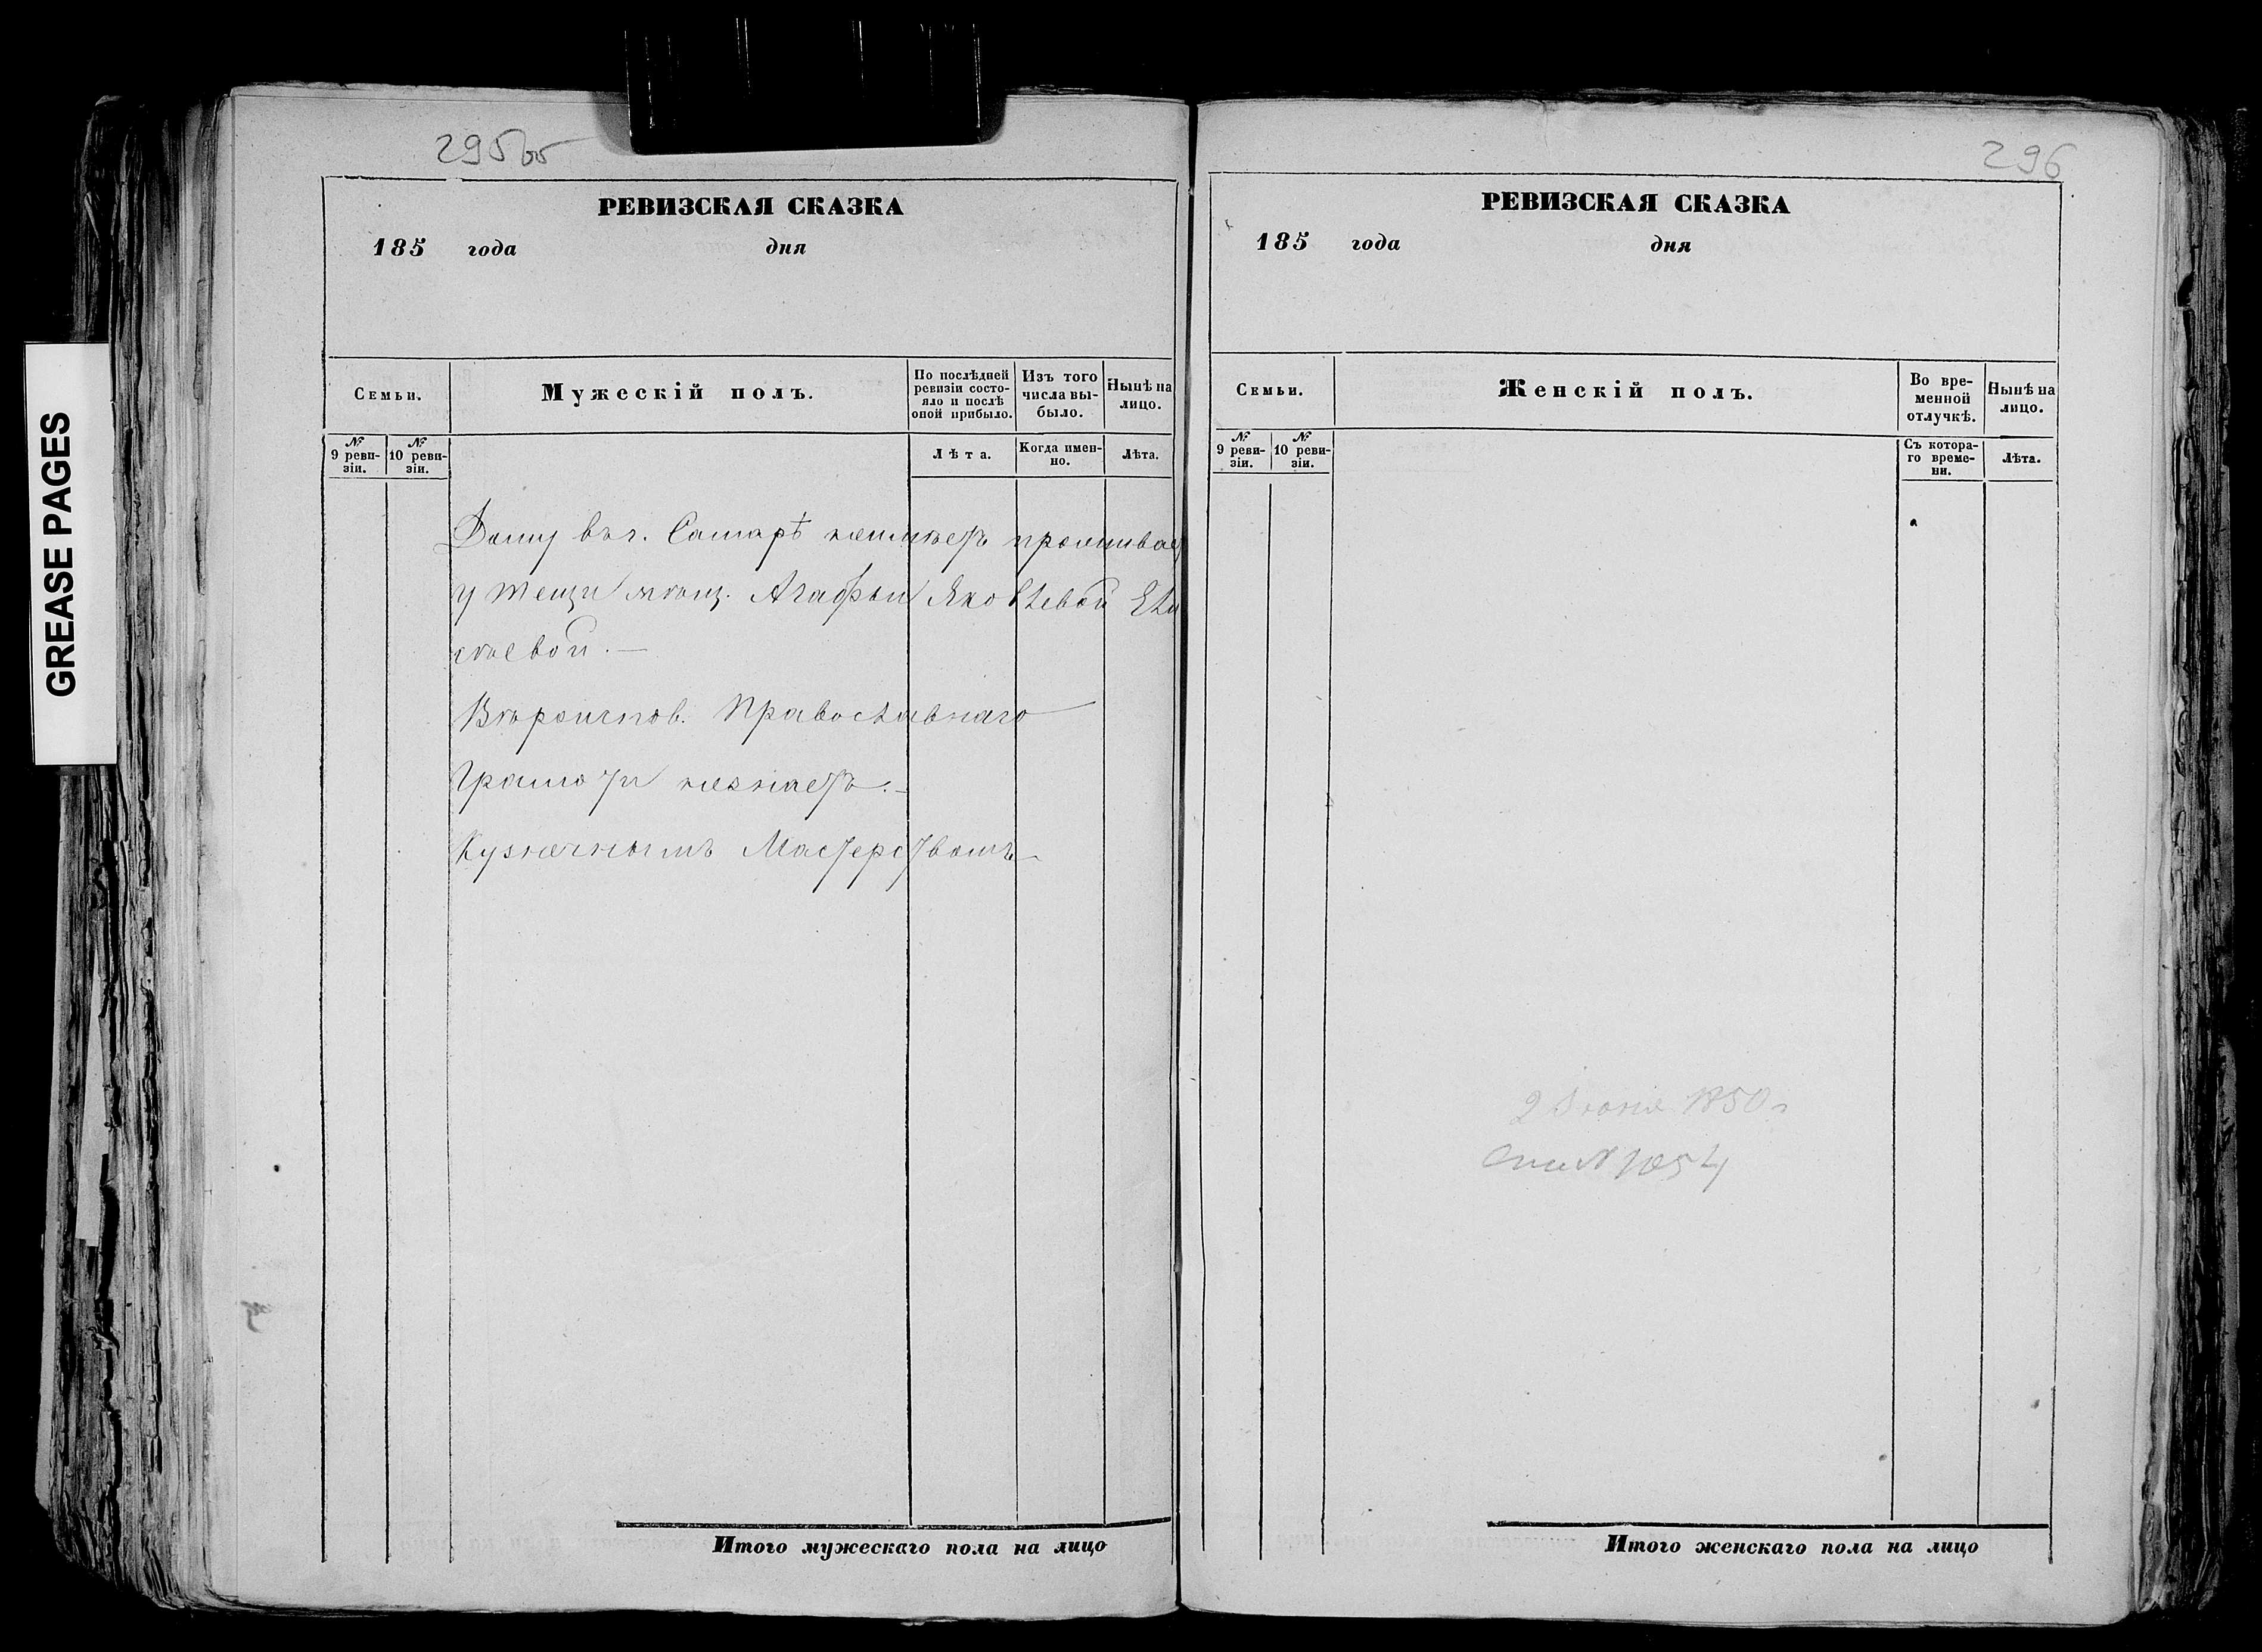 GREASE PAGES
295об
РЕВИЗСКАЯ СКАЗКА
185 года дня
Семьи.
Мужескій полъ.
По послѣдней ревизіи состояло и послѣ оной прибыло.
Изъ того числа выбыло.
Нынѣ на лицо.
№ 9 ревизіи.
№ 10 ревизіи.
Лѣта.
Когда именно.
Лѣта.
Дому въ г. Самарѣ неимѣетъ проживае
у тещи мѣщ. Агафьи Яковлевой Ели
сѣевой.—
Вѣроиспов. Православнаго
Грамоти незнаетъ.—
Кузнечнымъ Мастерствомъ—
Итого мужескаго пола на лицо
296
РЕВИЗСКАЯ СКАЗКА
185 года дня
Семьи.
Женскій полъ.
Во временной отлучкѣ.
Нынѣ на лицо.
№ 9 ревизіи.
№ 10 ревизіи.
Съ котораго времени.
Лѣта.
2 Іюня 1850 г
№ 1054
Итого женскаго пола на лицо